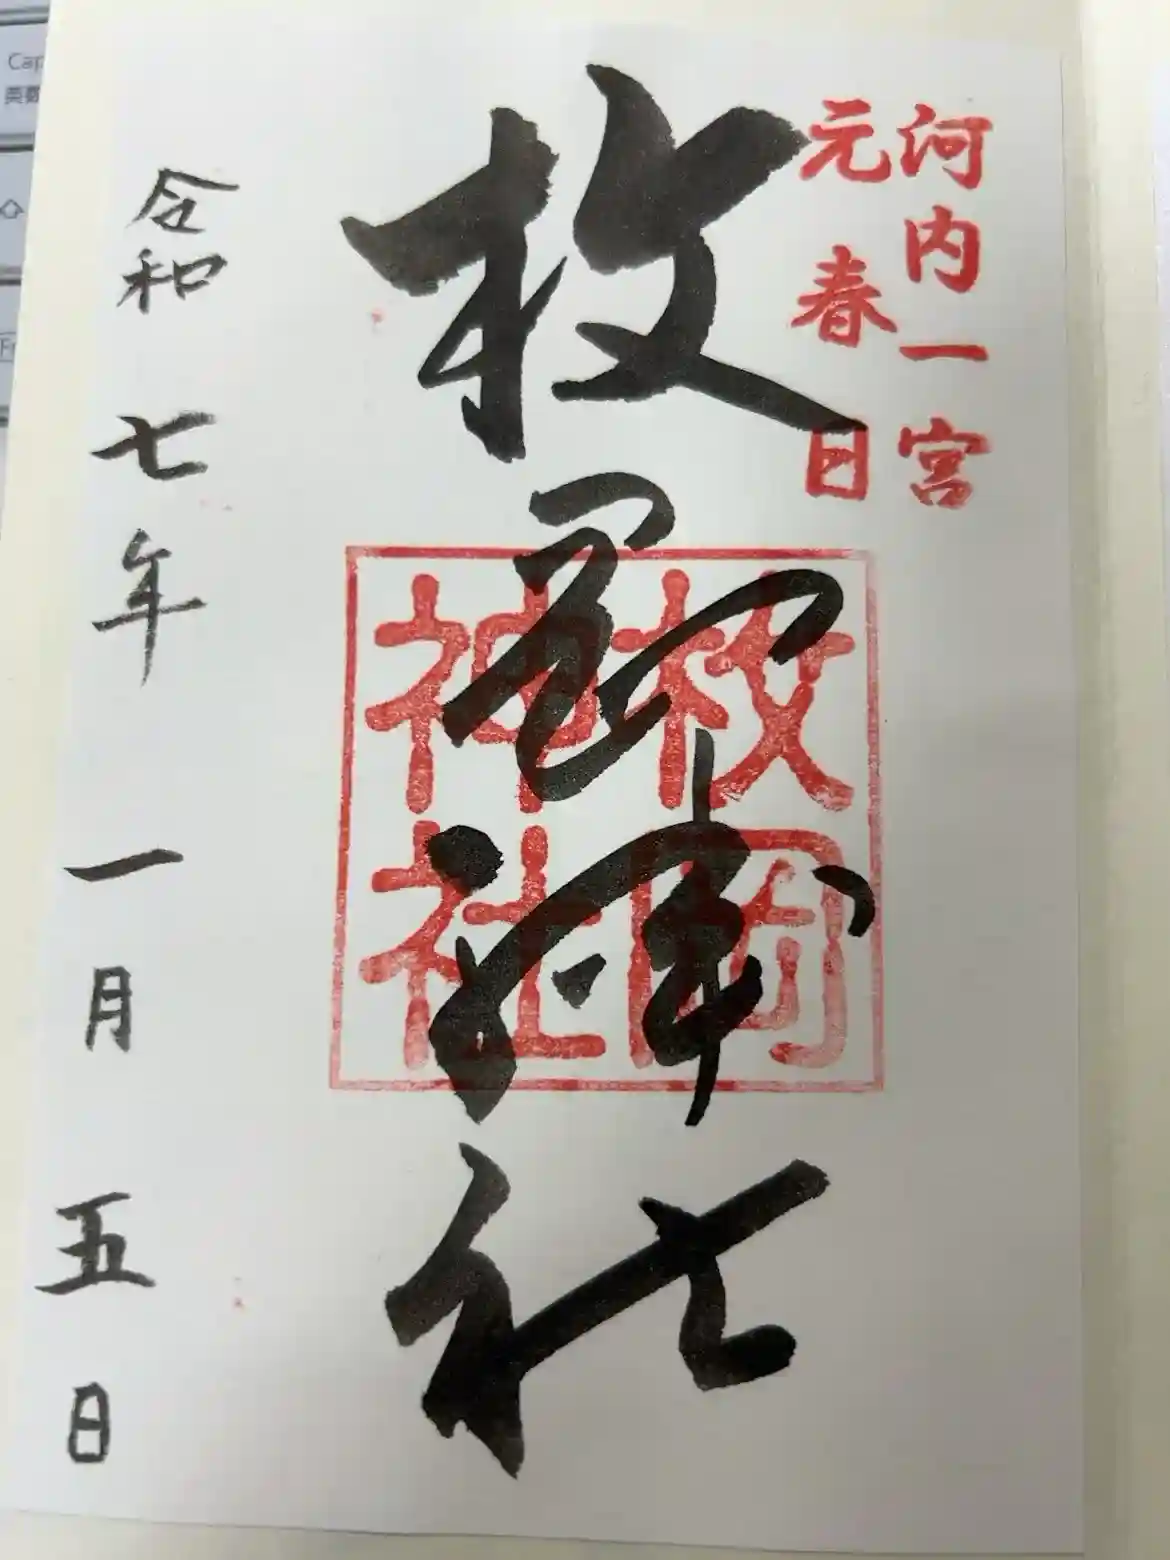 河内一宮
元春日
枚岡神社
枚岡
神社
令和七年一月五日
Cap
英数